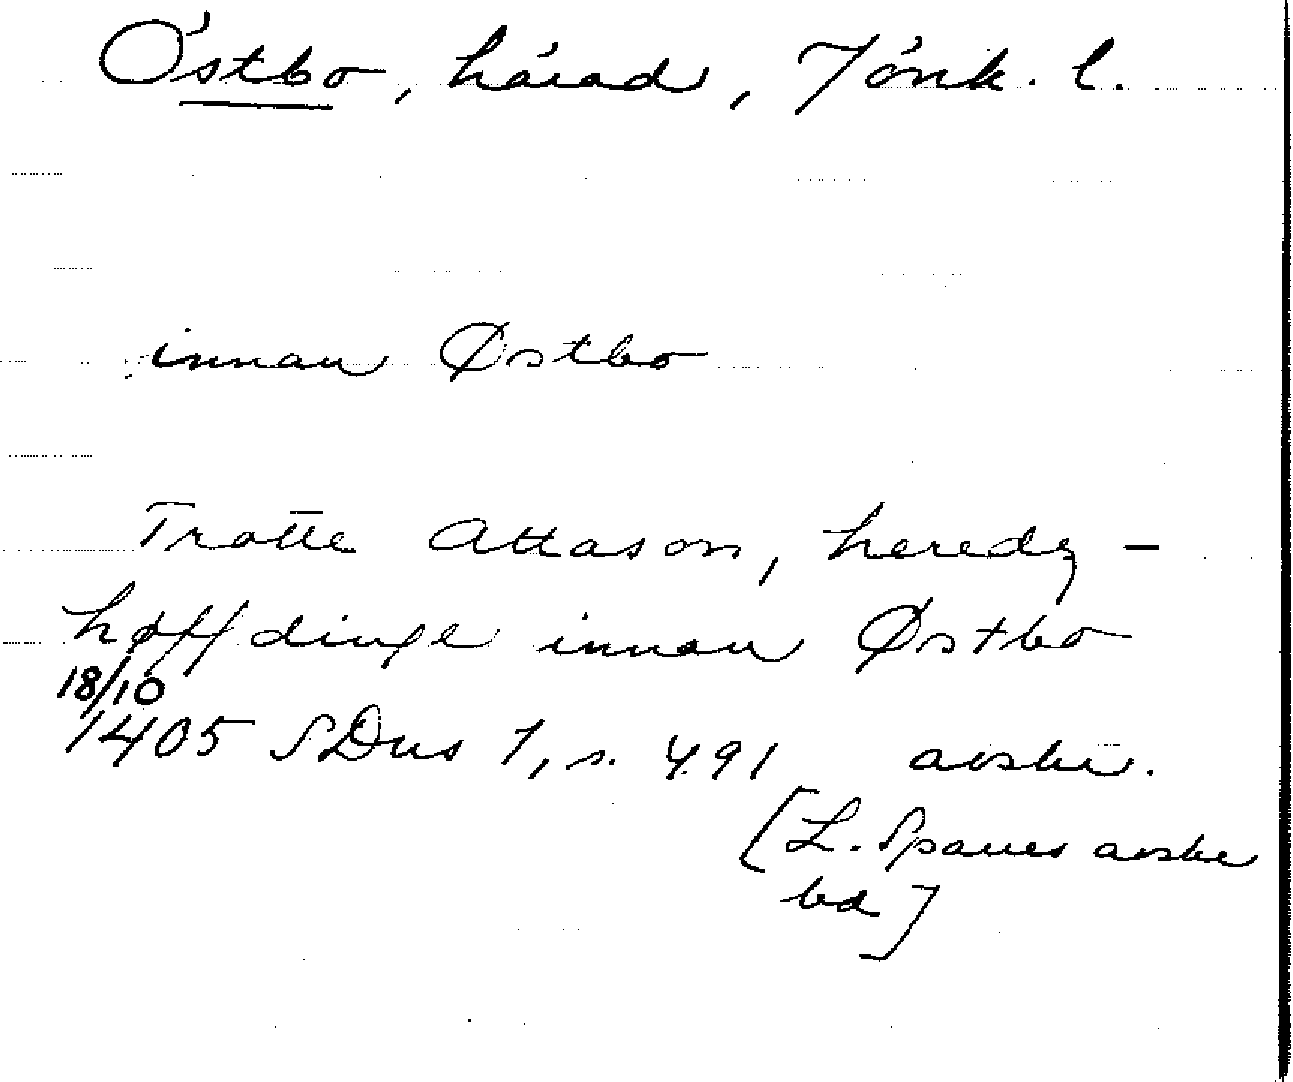 Östbo, härad, Jönk. l.
innan Østbo
Trotte Attason, heredz-
høffdinge innan Østbo
18/10
1405 SDns 1, s. 491 avskr.
[L. Sparres avskr
bd]